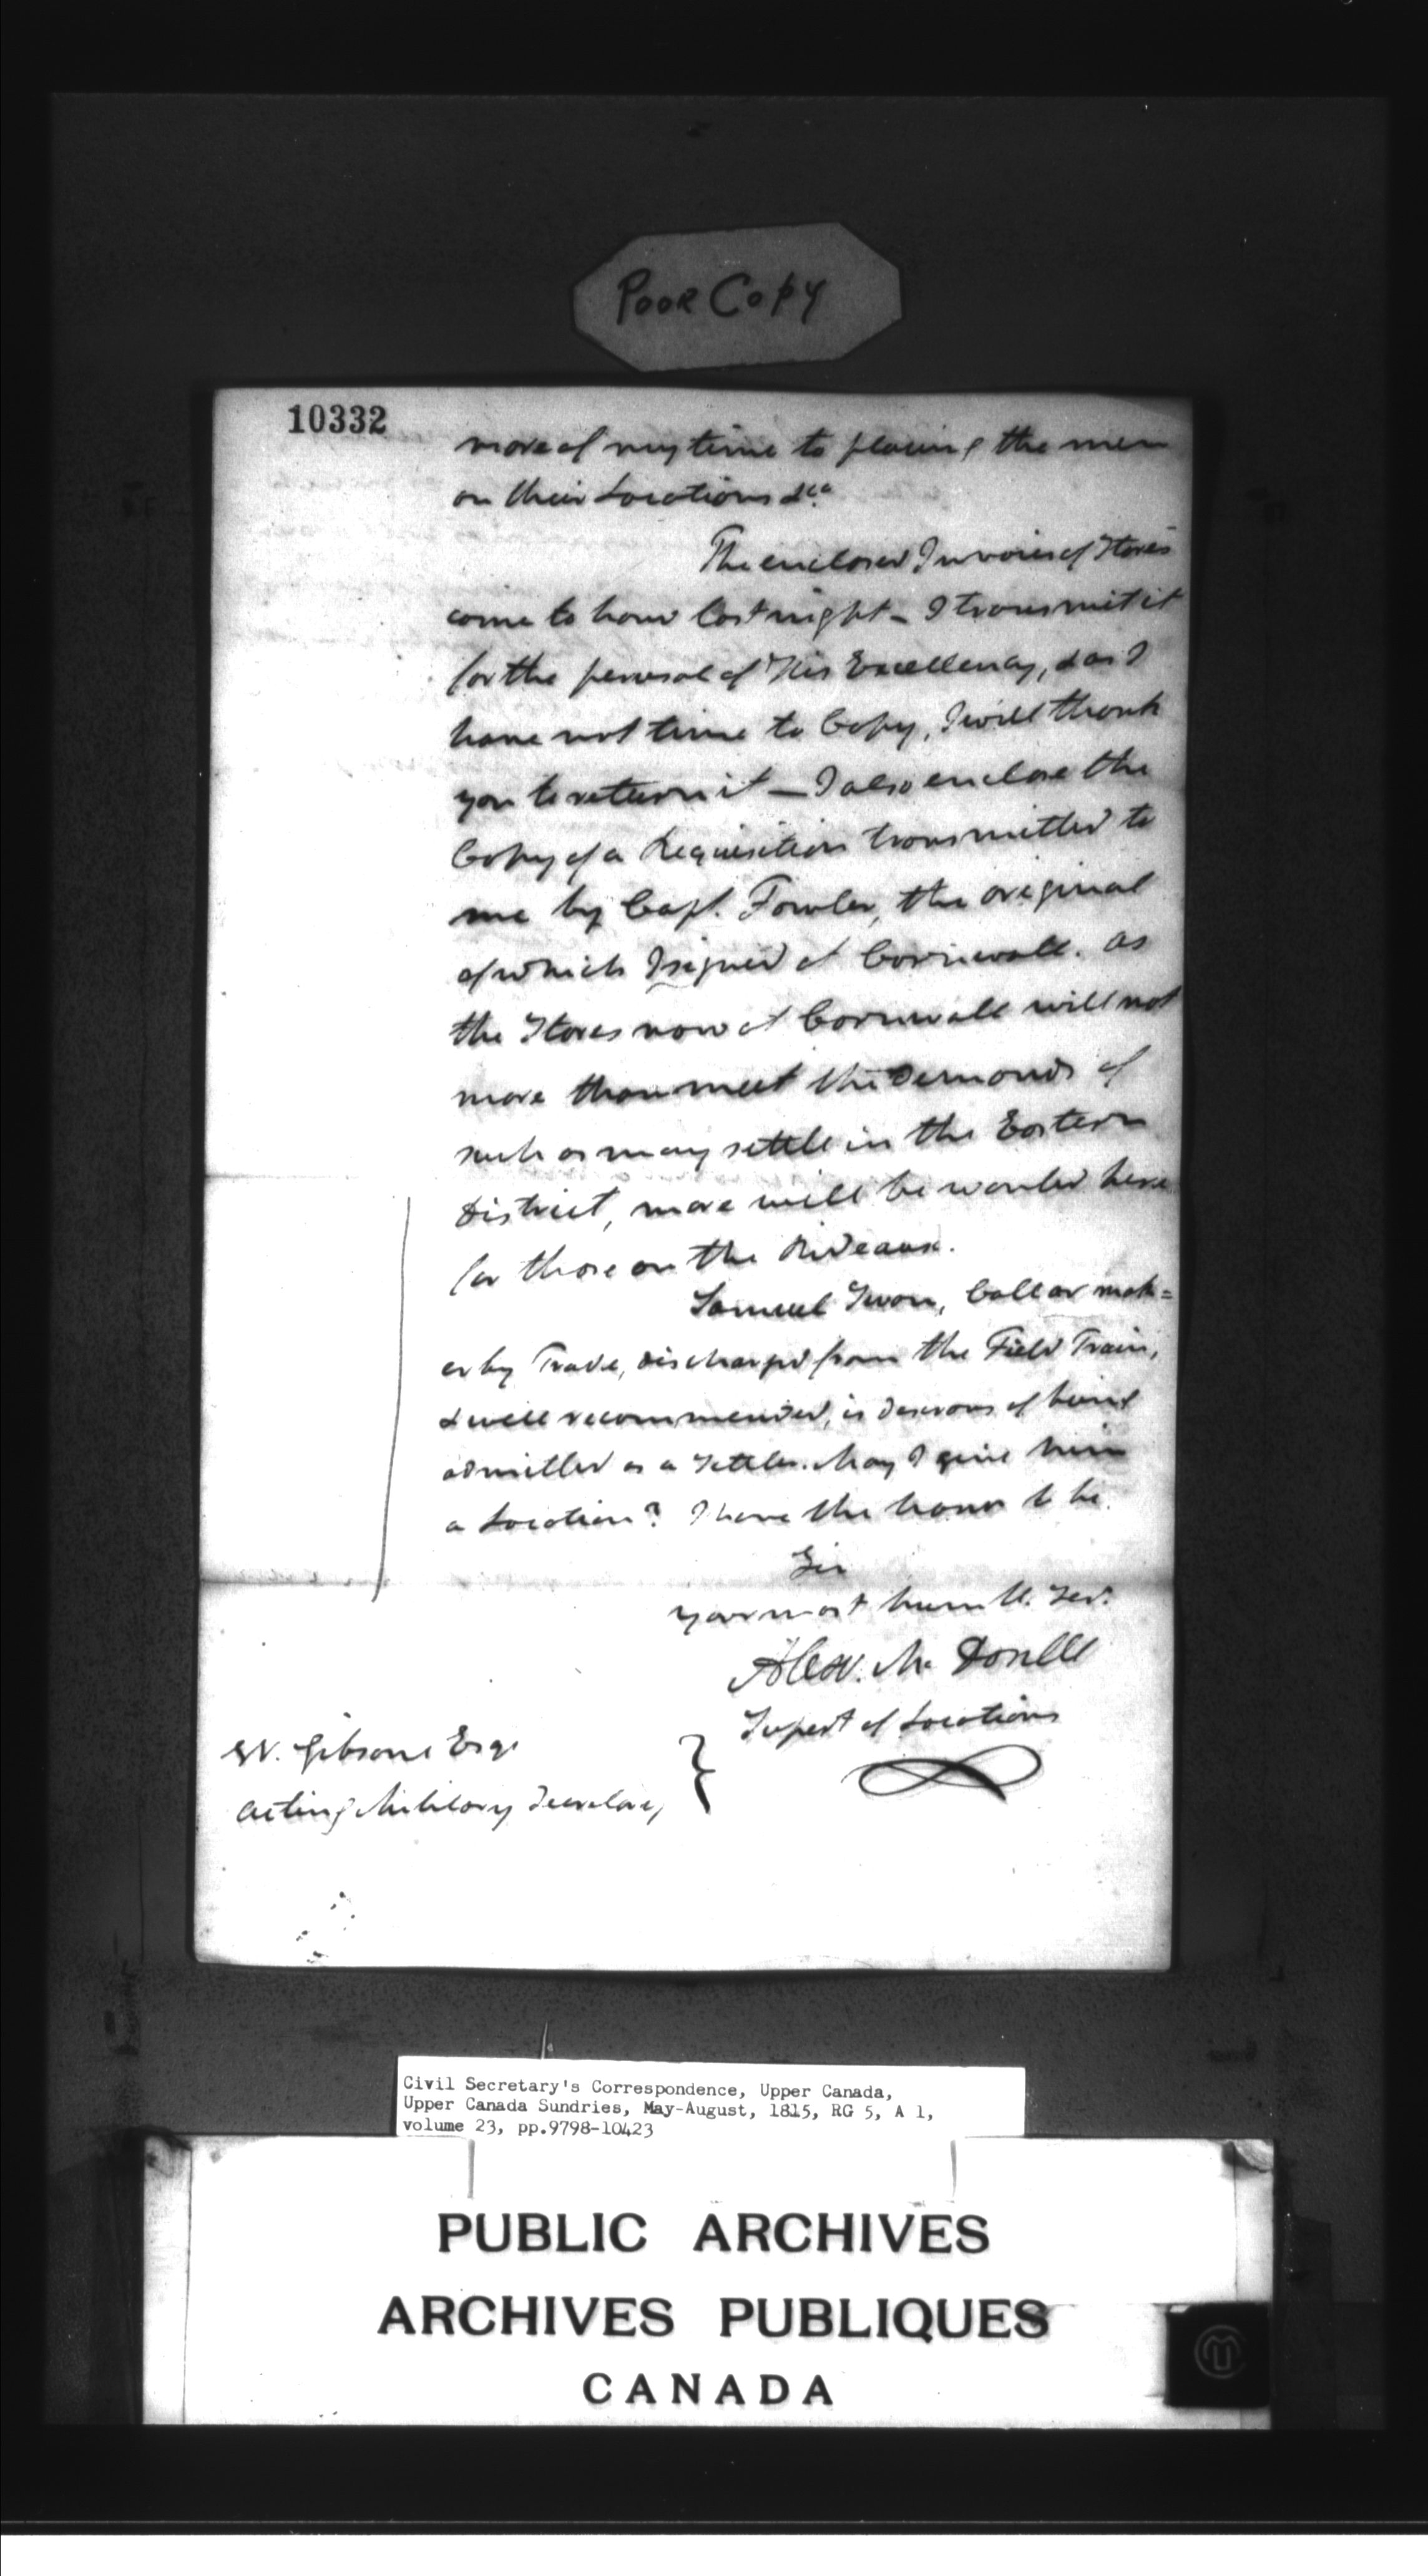 Poor Copy
10332
more of my time to placing the men
on their Locations &ca
The enclosed Invoice of Stores
came to hand last night – I transmit it
for the perusal of His Excellency, & as I
have not time to Copy, I will thank
you to return it – I also enclose the
Copy of a Requisition transmitted to
me by Capt. Fowler, the original
of which I signed at Cornwall. as
the Stores now at Cornwall will not
more than meet the Demands of
such as may settle in the Eastern
District, more will be wanted here
for those on the Rideaux.
Samuel Swan, Collar mak=
er by Trade, discharged from the Field Train,
& well recommended, is desirous of being
admitted as a Settler. May I give him
a Location? I have the honor to be
Sir
your most humbl. Ser.
Alexr. Mc Donell
Supert of Locations
W. Gibsone Esqr
Acting Military Secretary
Civil Secretary's Correspondence, Upper Canada,
Upper Canada Sundries, May-August, 1815, RG 5, A 1,
volume 23, pp.9798-10423
PUBLIC ARCHIVES
ARCHIVES PUBLIQUES
CANADA